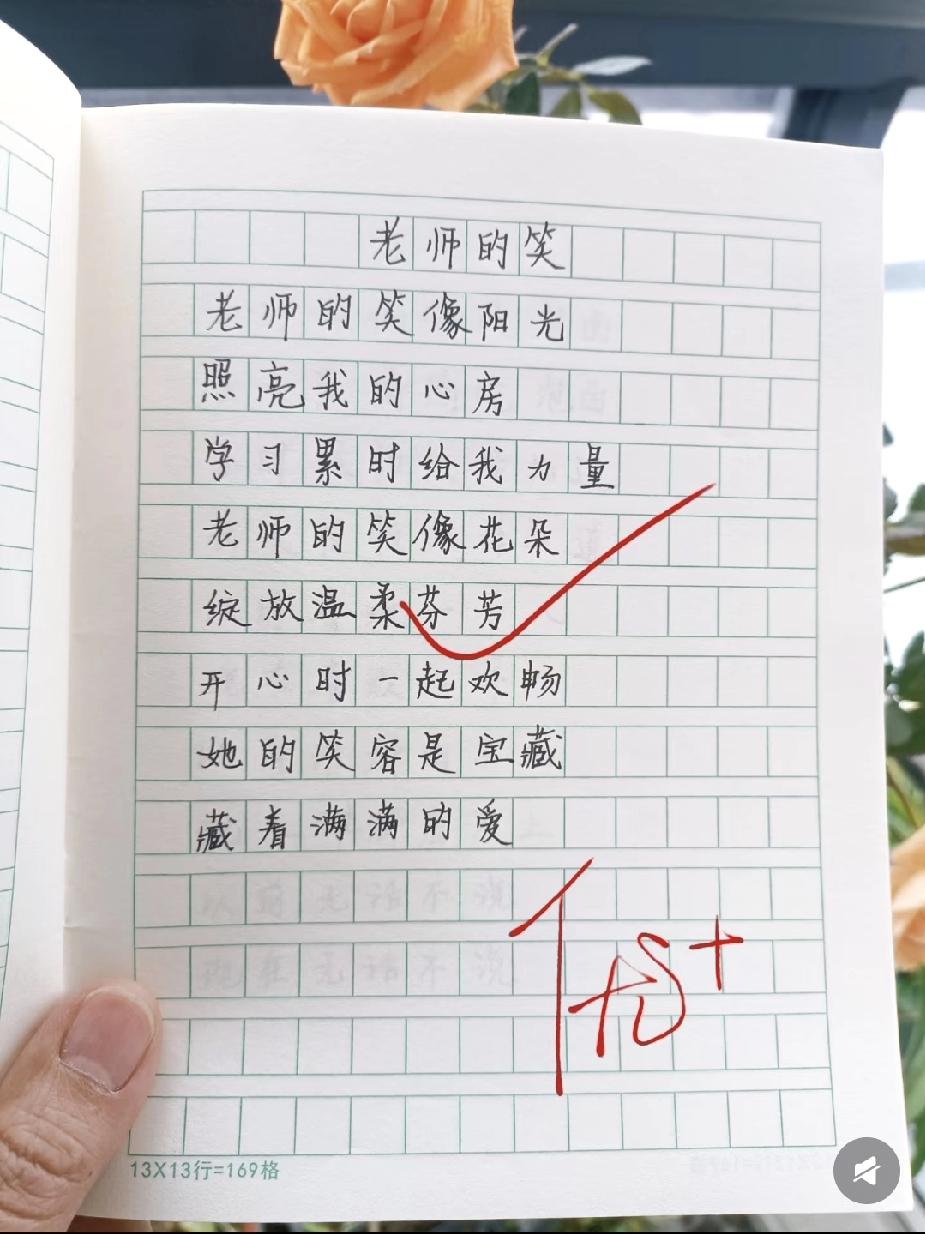 老师的笑
老师的笑像阳光
照亮我的心房
学习累时给我力量
老师的笑像花朵
绽放温柔芬芳
开心时一起欢畅
她的笑容是宝藏
藏着满满的爱
优+
13X13行=169格